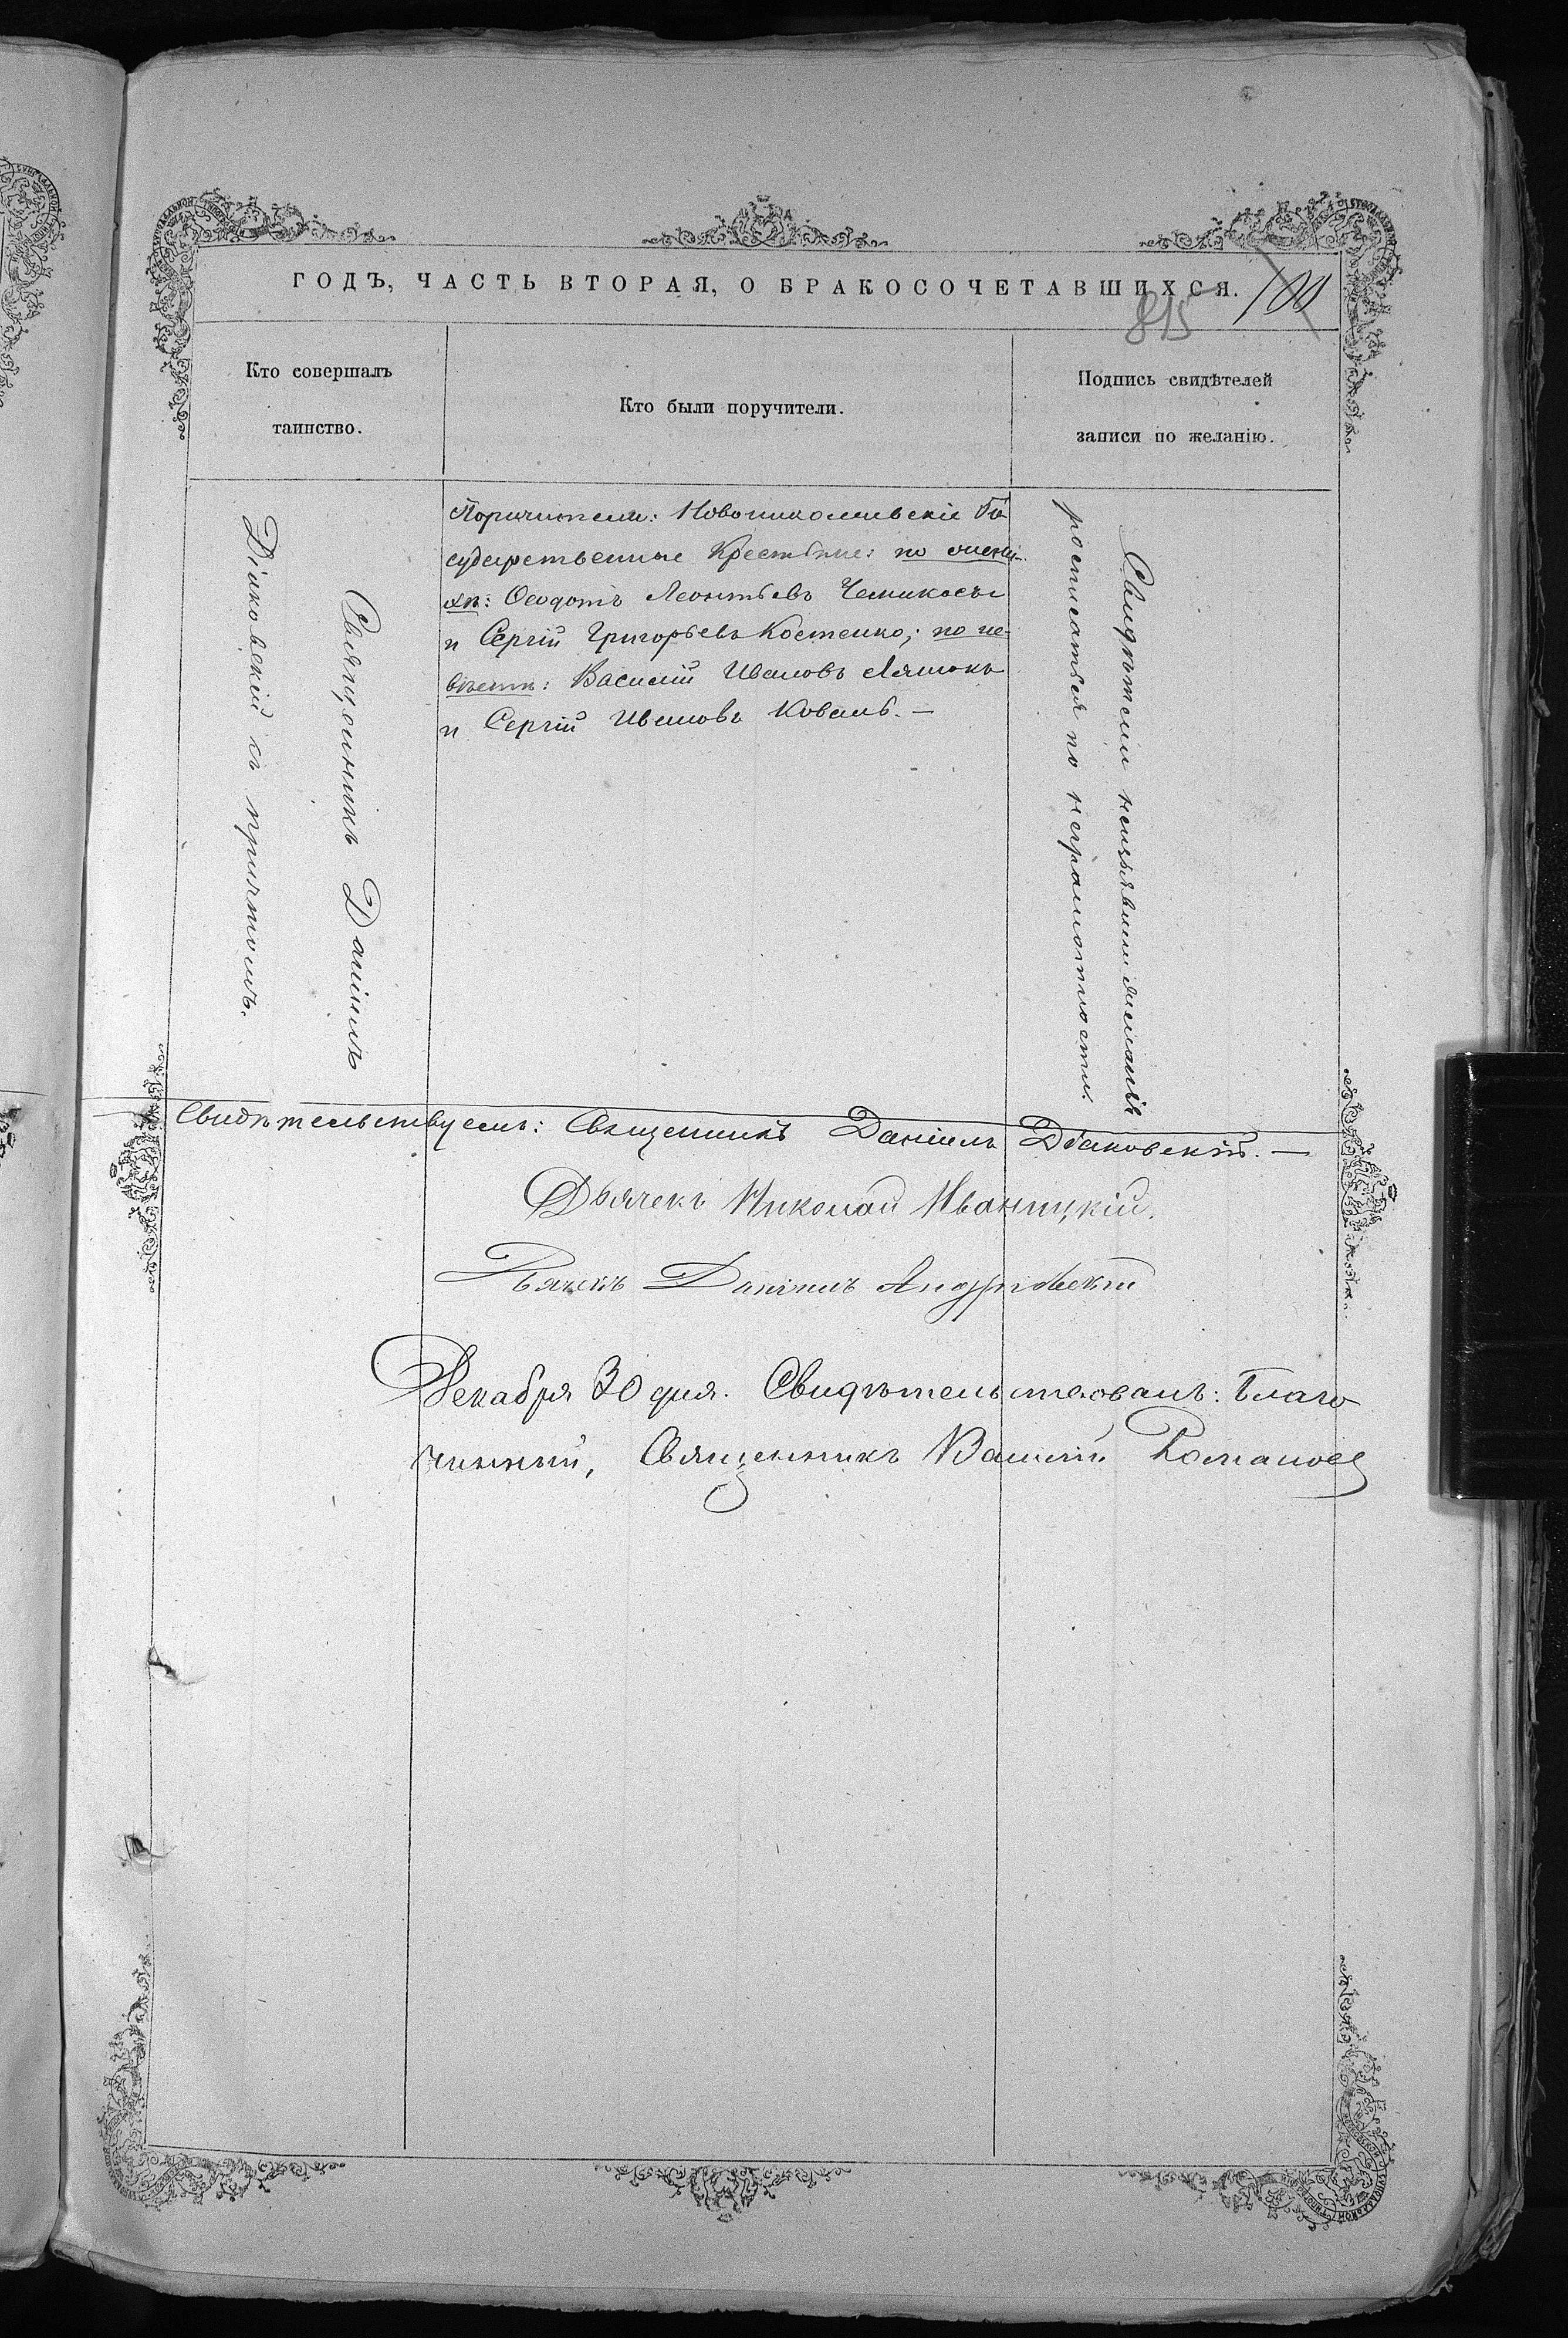 ГОДЪ, ЧАСТЬ ВТОРАЯ, О БРАКОСОЧЕТАВШИХСЯ.
100
815
Кто совершалъ
таинство.
Кто были поручители.
Подпись свидѣтелей
записи по желанію.
Священникъ Даніилъ
Діяковскій съ причтомъ.
Поручители: Новониколаевскіе Го
сударственные Крестьяне: по жени
хѣ: Ѳеодотъ Леонтьевъ
и Сергій Григорьевъ Костенко; по не-
вѣстѣ: Василій Ивановъ Ляшокъ
и Сергій Ивановъ Коваль. —
Свидѣтели неизъявили желанія
росписаться по неграмотности.
Свидѣтельствуемъ: Священникъ Даніилъ Дьаковскій. —
Дьячекъ Николай Иваницкій.
Дьячекъ Даніилъ Андріевскій
Декабря 30 дня. Свидѣтельствовалъ: Благо
чинный, Священникъ Василій Романовъ